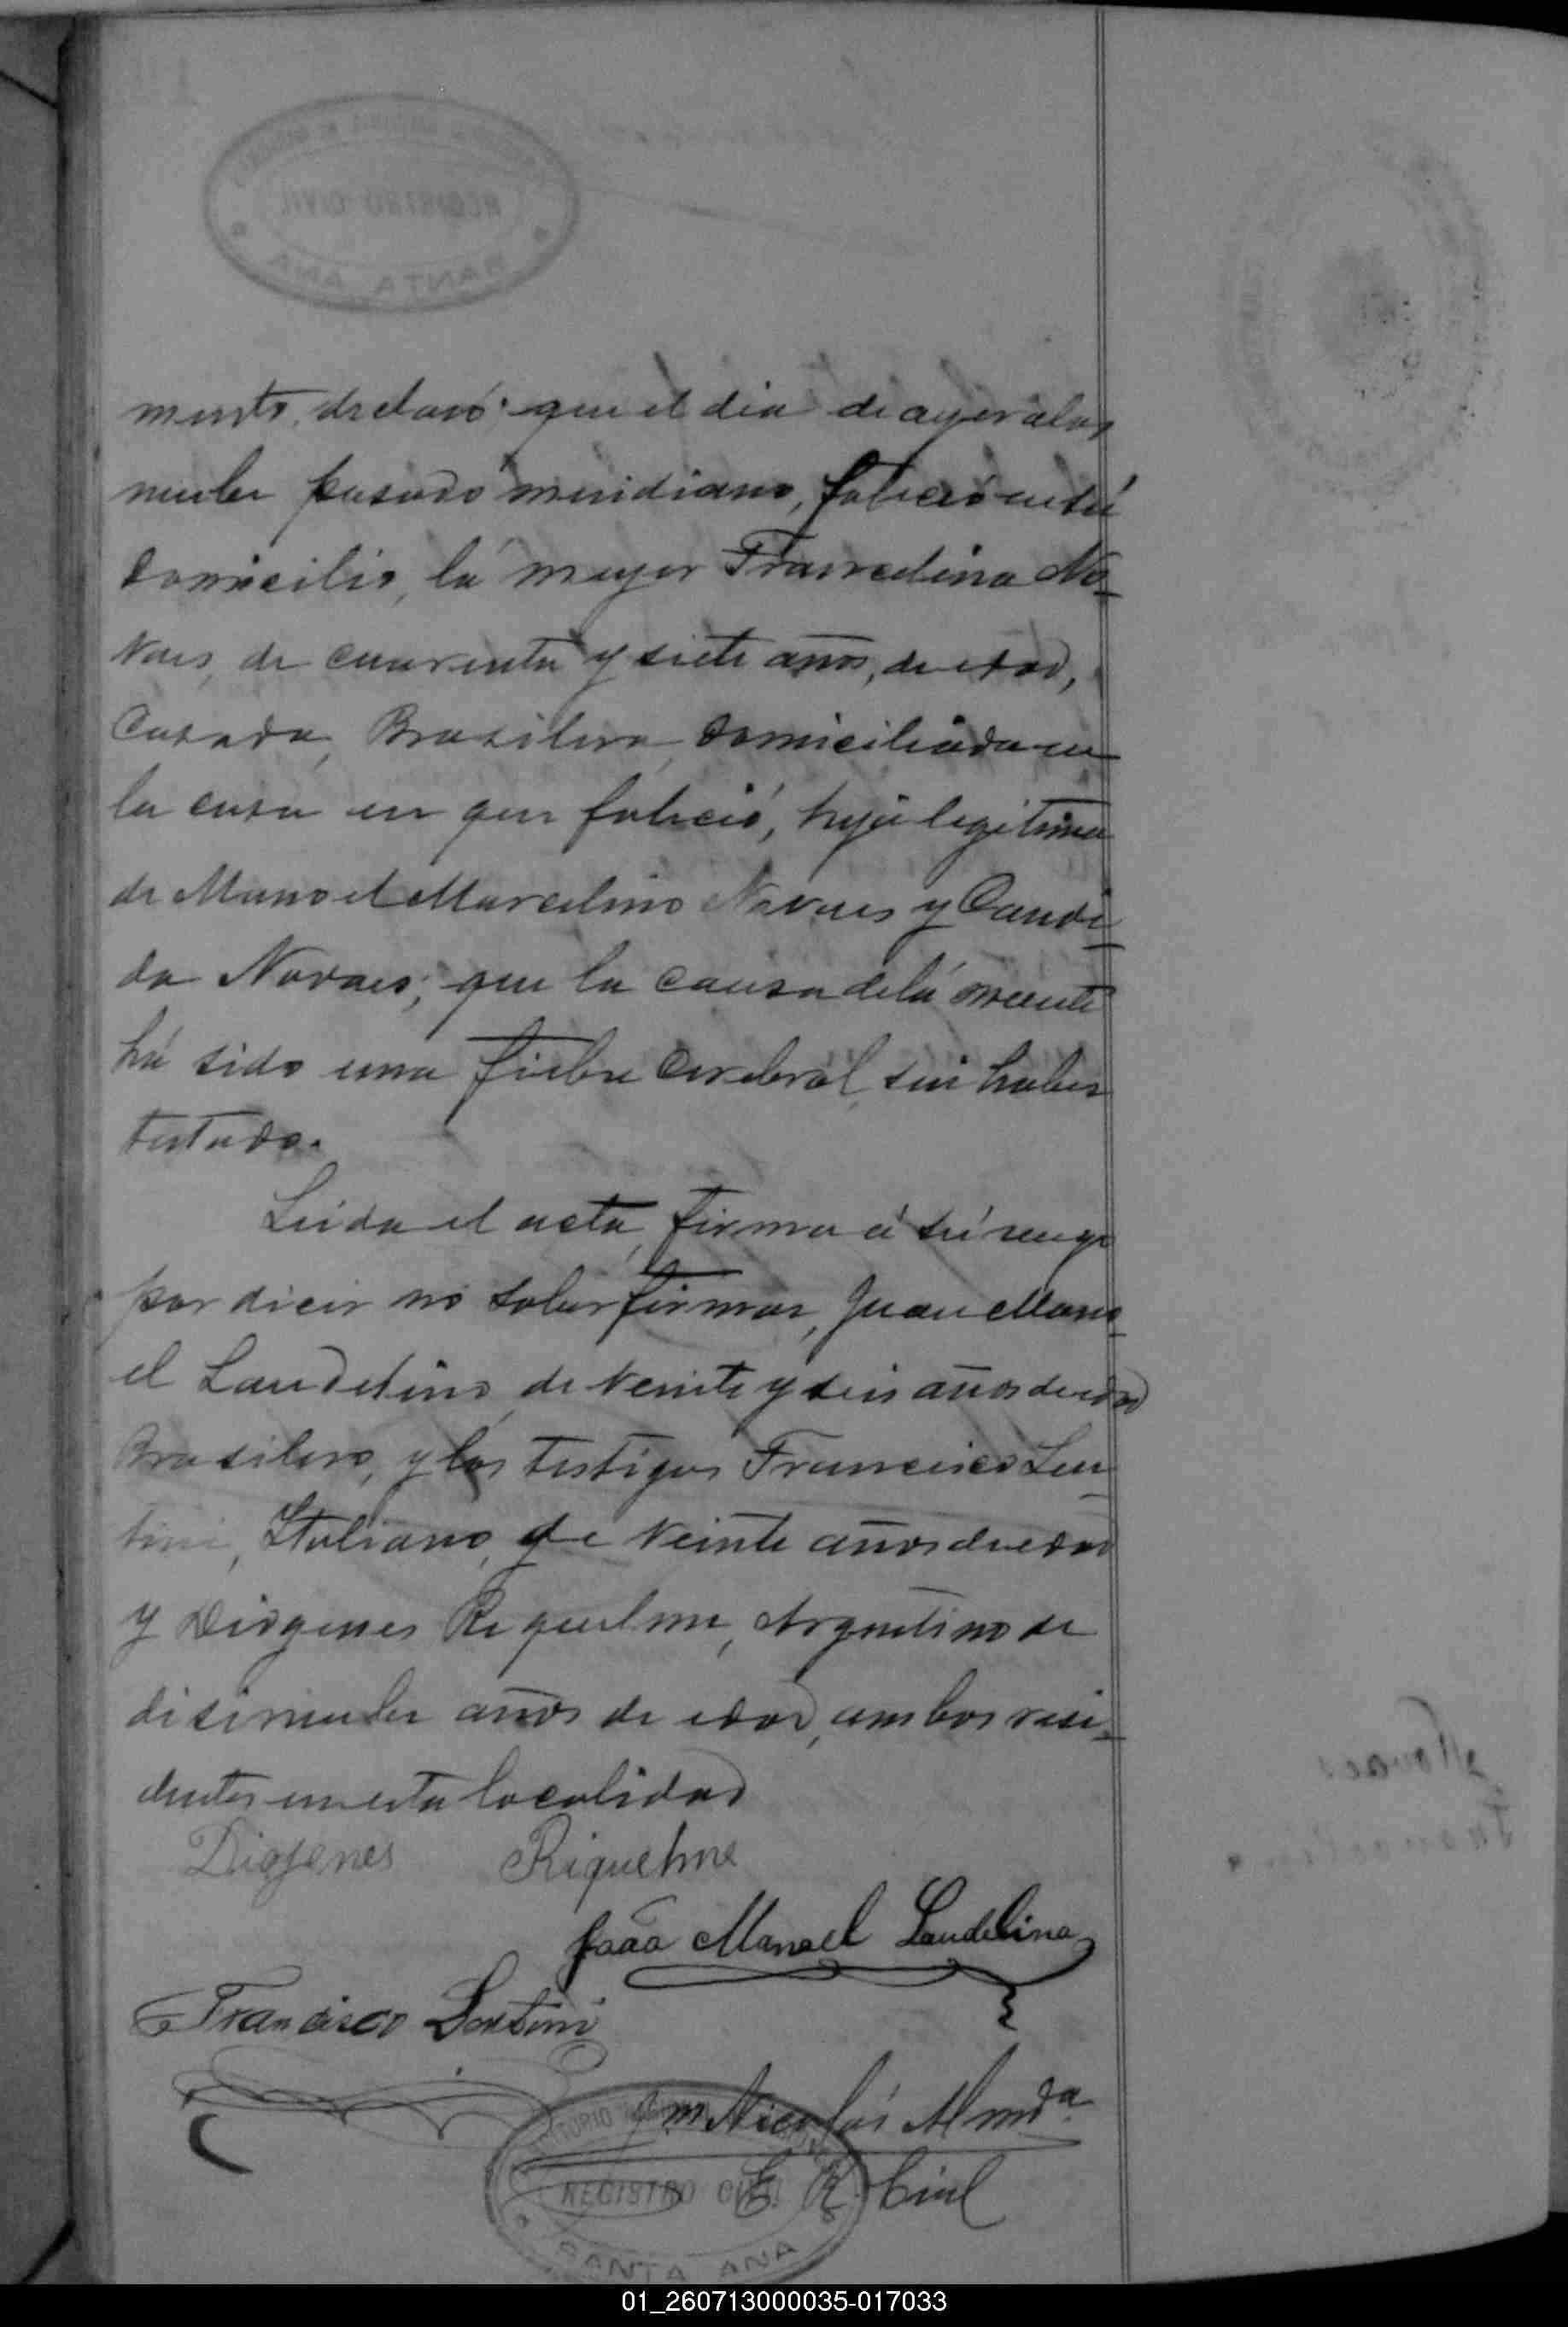 mento, declaró: que el dia de ayer alas
nueve pasado meridiano, falleció en sú
domicilio, la mujer Francelina No-
vaes, de cuarenta y siete años, de edad,
Casada, Brasilera, domiciliada en
la casa en que falleció, hija legitima
de Manoel Marcelino Novaes y Candi-
da Novaes; que la causa dela muerte
há sido una fiebre Cerebral, sin haber
testado.
Leida el acta, firma á sú ruego
por dicir no saber firmar, Juan Mano-
el Laudelino de veinte y seis años de edad
Brasilero, y los testigos Francisco Len-
tini, Italiano, de veinte años de edad
y Diogenes Requelme, Argentino de
disinueve años de edad, ambos resi-
dentes en esta localidad
Diojenes Riquelme
João Manoel Laudelino
Francisco Lentini
Nicolás
E. R. Civil
REGISTRO CIVIL
SANTA ANA
01_260713000035-017033